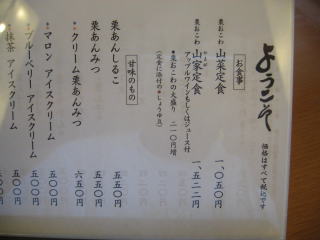 ようこそ
価格はすべて税込です
お食事
栗おこわ 山菜定食 一、〇五〇円
栗おこわ 山家定食 一、五二二円
アップルワインもしくはジュース付
栗おこわの大盛り 二一〇円増
甘味のもの
栗あんしるこ 五五〇円
栗あんみつ 五五〇円
クリーム栗あんみつ 六五〇円
マロン アイスクリーム 五〇〇円
ブルーベリー アイスクリーム 五〇〇円
抹茶 アイスクリーム